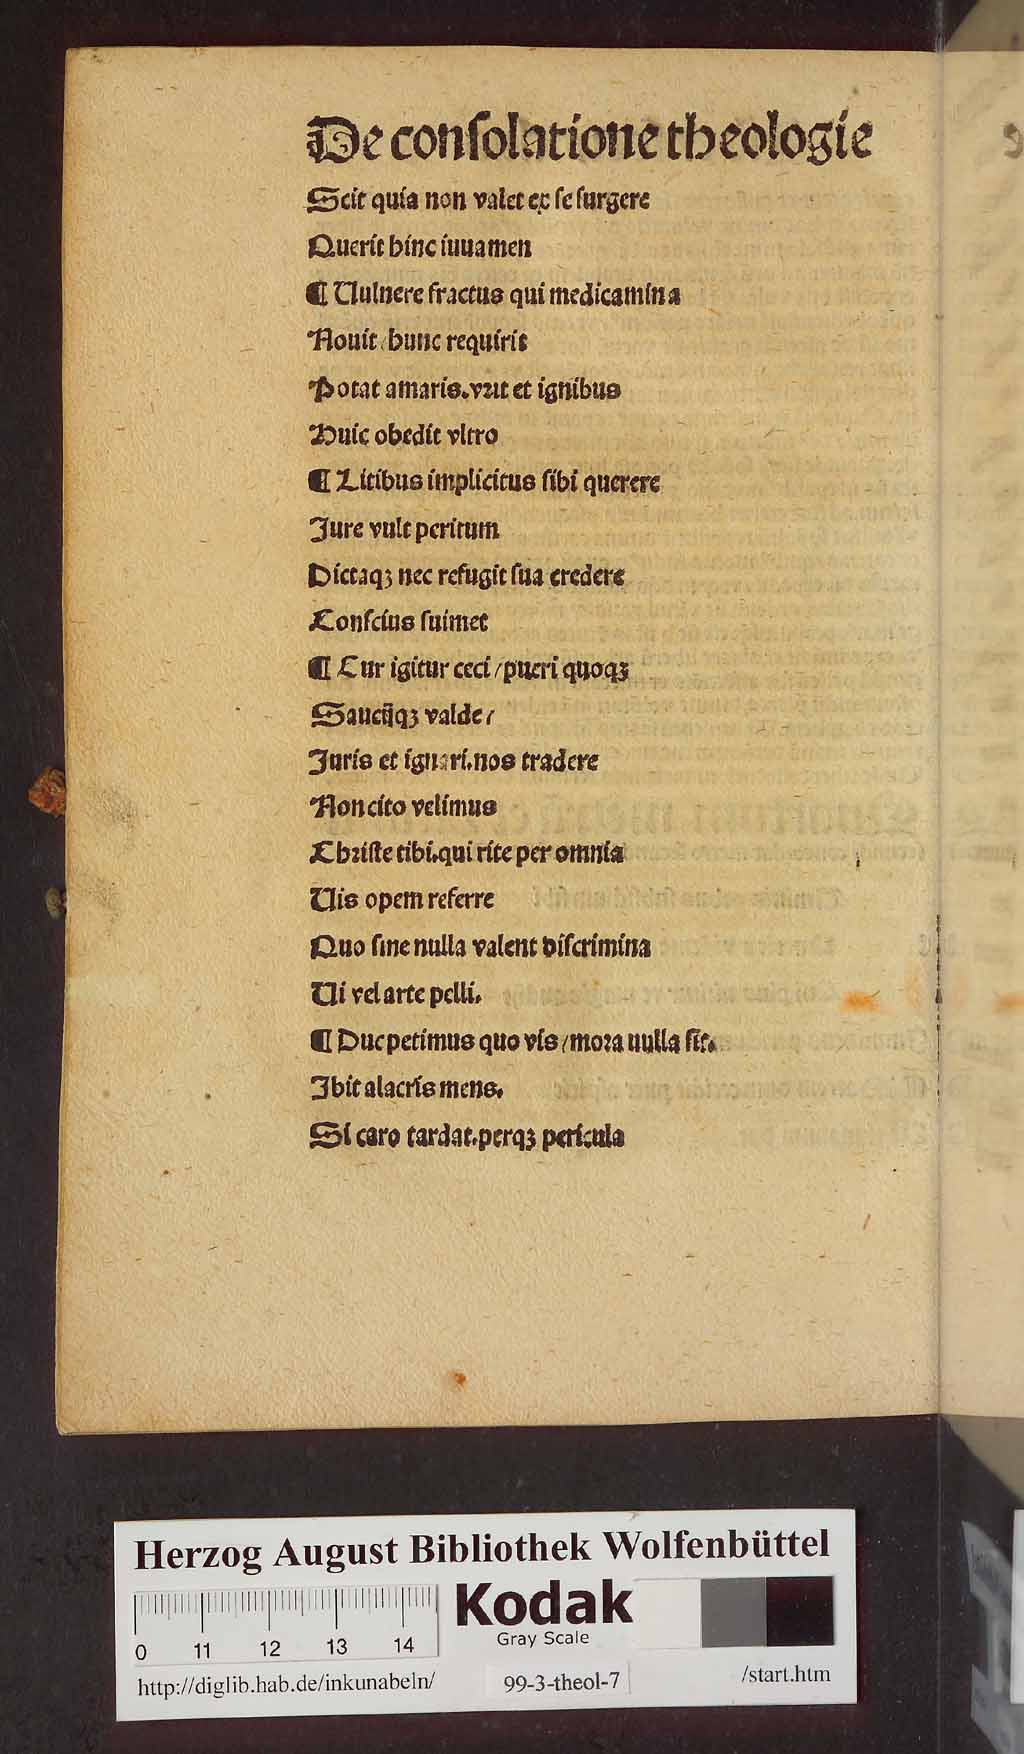 De conſolatione theologie
Scit quia non valet ex ſe ſurgere
Querit hinc iuuamen
¶ Uulnere fractus qui medicamina
Nouit / hunc requirit
Potat amaris. vrit et ignibus
Huic obedit vltro
¶ Litibus implicitus ſibi querere
Jure vult peritum
Dictaqꝫ nec refugit ſua credere
Conſcius ſuimet
¶ Cur igitur ceci / pueri quoqꝫ
Sauciiqꝫ valde /
Juris et ignari. nos tradere
Non cito velimus
Chriſte tibi. qui rite per omnia
Uis opem referre
Quo ſine nulla valent diſcrimina
Ui vel arte pelli.
¶ Duc petimus quo vis / mora uulla ſit.
Jbit alacris mens.
Si caro tardat. perqꝫ pericula
Herzog August Bibliothek Wolfenbüttel
Kodak
Gray Scale
0 11 12 13 14
http://diglib.hab.de/inkunabeln/ 99-3-theol-7 /start.htm